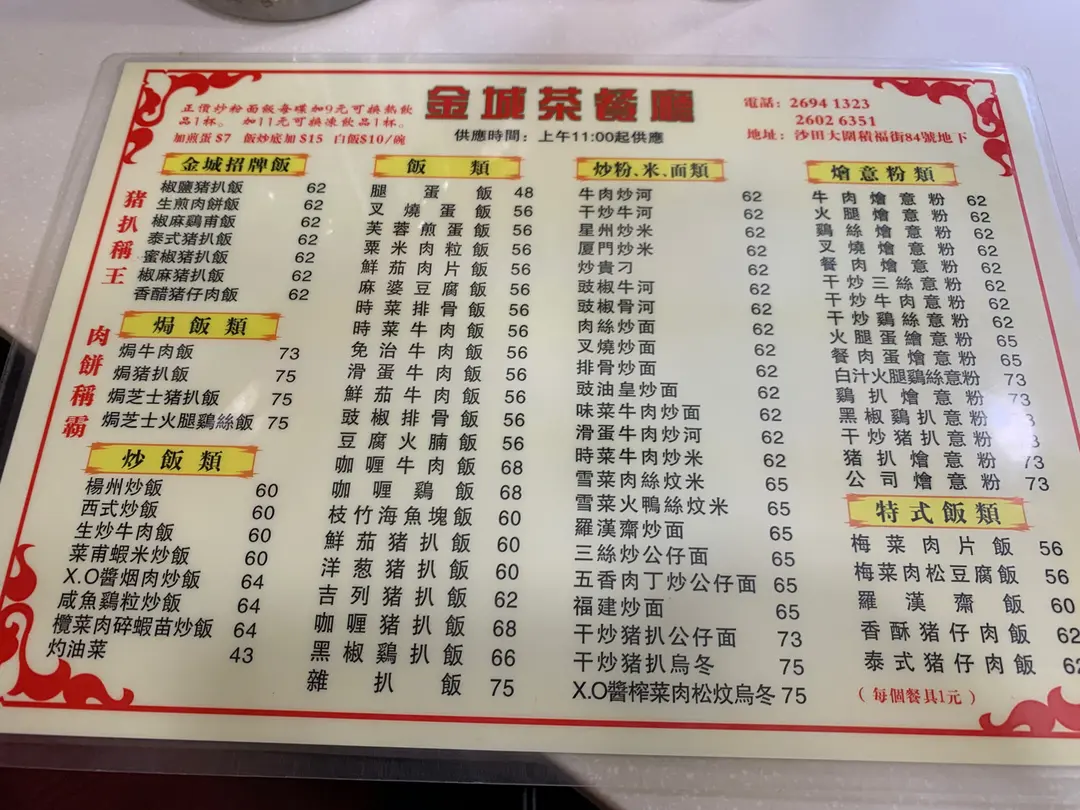 正價炒粉面飯每碟加9元可換熱飲
品1杯。 加11元可換凍飲品1杯。
加煎蛋$7 飯炒底加$15 白飯$10/碗
金城茶餐廳
供應時間：上午11:00起供應
電話：2694 1323
2602 6351
地址：沙田大圍積福街84號地下
豬扒稱王
肉餅稱霸
金城招牌飯
椒鹽豬扒飯 62
生煎肉餅飯 62
椒麻鷄甫飯 62
泰式豬扒飯 62
蜜椒豬扒飯 62
椒麻豬扒飯 62
香醋豬仔肉飯 62
焗飯類
焗牛肉飯 73
焗豬扒飯 75
焗芝士豬扒飯 75
焗芝士火腿鷄絲飯 75
炒飯類
楊州炒飯 60
西式炒飯 60
生炒牛肉飯 60
菜甫蝦米炒飯 60
X.O醬烟肉炒飯 64
咸魚鷄粒炒飯 64
欖菜肉碎蝦苗炒飯 64
灼油菜 43
飯類
腿蛋飯 48
叉燒蛋飯 56
芙蓉煎蛋飯 56
粟米肉粒飯 56
鮮茄肉片飯 56
麻婆豆腐飯 56
時菜排骨飯 56
時菜牛肉飯 56
免治牛肉飯 56
滑蛋牛肉飯 56
鮮茄牛肉飯 56
豉椒排骨飯 56
豆腐火腩飯 56
咖喱牛肉飯 68
咖喱鷄飯 68
枝竹海魚塊飯 60
鮮茄豬扒飯 60
洋葱豬扒飯 60
吉列豬扒飯 62
咖喱豬扒飯 68
黑椒鷄扒飯 66
雜扒飯 75
炒粉、米、面類
牛肉炒河 62
干炒牛河 62
星州炒米 62
厦門炒米 62
炒貴刁 62
豉椒牛河 62
豉椒骨河 62
肉絲炒面 62
叉燒炒面 62
排骨炒面 62
豉油皇炒面 62
味菜牛肉炒面 62
滑蛋牛肉炒河 62
時菜牛肉炒米 62
雪菜肉絲炆米 65
雪菜火鴨絲炆米 65
羅漢齋炒面 65
三絲炒公仔面 65
五香肉丁炒公仔面 65
福建炒面 65
干炒豬扒公仔面 73
干炒豬扒烏冬 75
X.O醬榨菜肉松炆烏冬 75
燴意粉類
牛肉燴意粉 62
火腿燴意粉 62
鷄絲燴意粉 62
叉燒燴意粉 62
餐肉燴意粉 62
干炒三絲意粉 62
干炒牛肉意粉 62
干炒鷄絲意粉 62
火腿蛋繪意粉 65
餐肉蛋燴意粉 65
白汁火腿鷄絲意粉 73
鷄扒燴意粉 73
黑椒鷄扒意粉
干炒豬扒意粉
豬扒燴意粉 73
公司燴意粉 73
特式飯類
梅菜肉片飯 56
梅菜肉松豆腐飯 56
羅漢齋飯 60
香酥豬仔肉飯 62
泰式豬仔肉飯 62
（每個餐具1元）